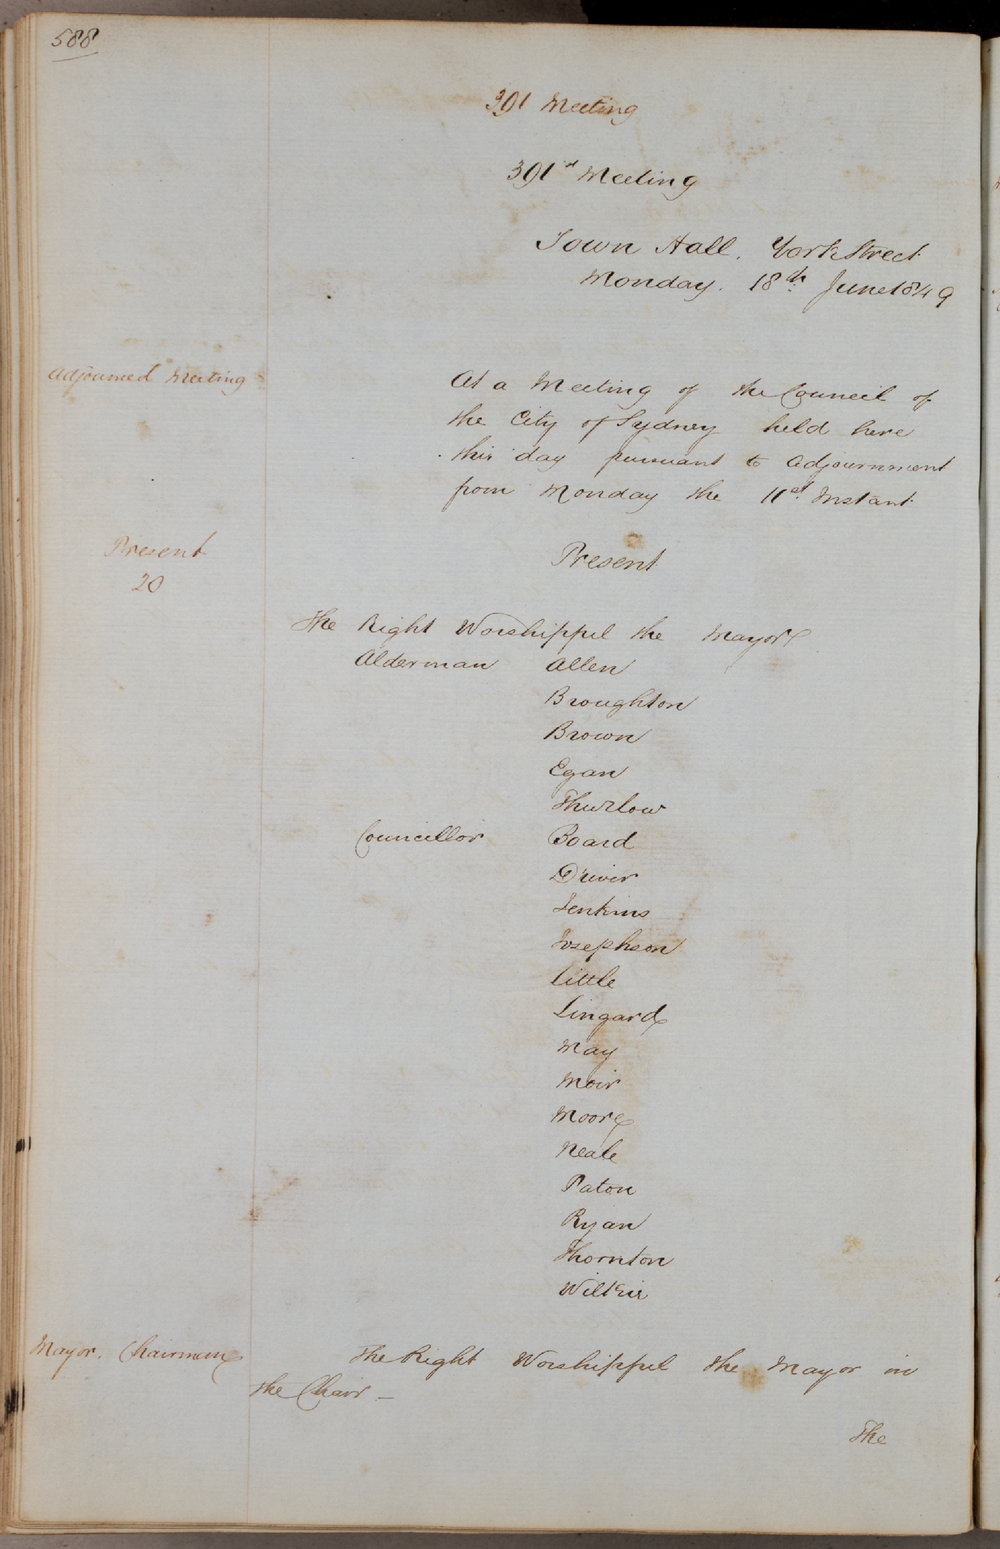 588
391 Meeting
391st Meeting
Town Hall. York Street
Monday. 18th June 1849
Adjourned Meeting
At a Meeting of the Council of
the City of Sydney held here
this day pursuant to adjournment
from Monday the 11th Instant
Present
20
Present
The Right Worshipful the Mayor
Alderman Allen
Broughton
Brown
Egan
Thurlow
Councillor Board
Driver
Jenkins
Josephson
Little
Lingard
May
Moir
Moore
Neale
Paton
Ryan
Thornton
Wilkie
Mayor. Chairman
The Right Worshipful the Mayor in
the Chair -
The